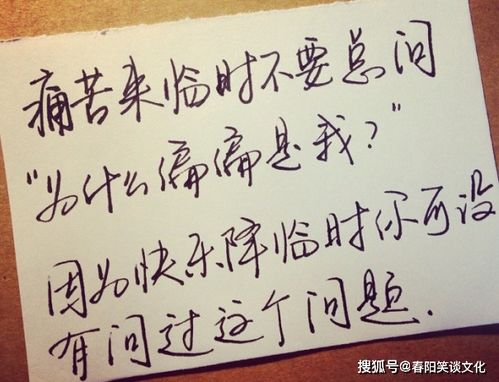 痛苦来临时不要总问
“为什么偏偏是我？”
因为快乐降临时你可没
有问过这个问题.
搜狐号@春阳笑谈文化